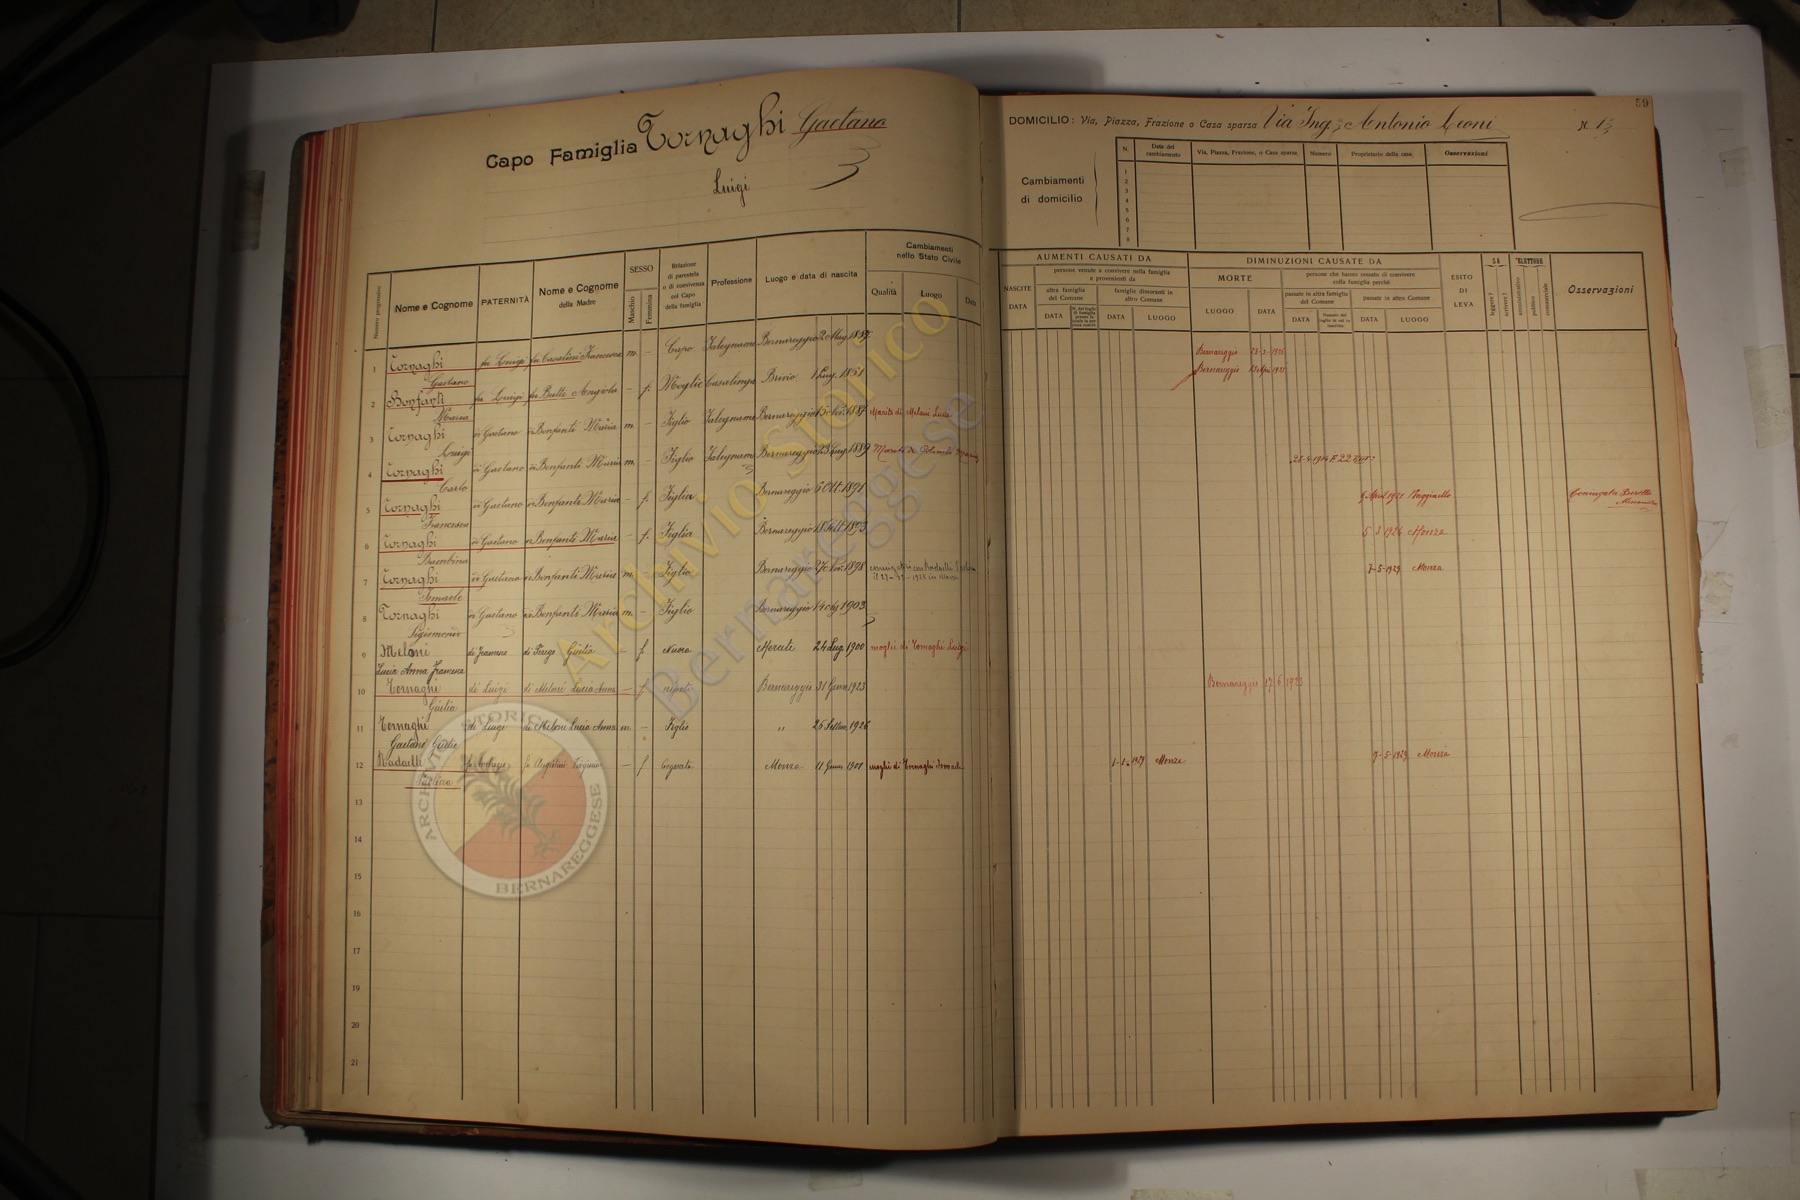 Capo Famiglia Tornaghi Gaetano
Luigi
59
DOMICILIO: Via, Piazza, Frazione o Casa sparsa Via Ing. Antonio Leoni N. 13
Cambiamenti di domicilio
N. Data del cambiamento Via, Piazza, Frazione, o Casa sparsa Numero Proprietario della casa Osservazioni
1
2
3
4
5
6
7
8
Numero progressivo Nome e Cognome PATERNITÀ Nome e Cognome della Madre SESSO Maschio Femmina Relazione di parentela o di convivenza col Capo della famiglia Professione Luogo e data di nascita Cambiamenti nello Stato Civile Qualità Luogo Data
AUMENTI CAUSATI DA
NASCITE DATA
persone venute a convivere nella famiglia e provenienti da
altra famiglia del Comune DATA
famiglie dimoranti in altro Comune DATA LUOGO
DIMINUZIONI CAUSATE DA
MORTE LUOGO DATA
persone che hanno cessato di convivere colla famiglia perchè
passate in altra famiglia del Comune DATA
passate in altro Comune DATA LUOGO
ESITO DI LEVA
SA leggere? scrivere?
ELETTORE amministrativo politico commerciale
Osservazioni
1 Tornaghi Gaetano fu Luigi fu Casalini Francesca m. – Capo Falegname Bernareggio 2 Mag. Bernareggio
2 Bonfanti Maria fu Luigi fu Butti Angiola – f. Moglie Casalinga Brivio 1 Lug. 1851 Bernareggio
3 Tornaghi Luigi di Gaetano di Bonfanti Maria m. – Figlio Falegname Bernareggio 1887 Marito di Meloni Lucia
4 Tornaghi Carlo di Gaetano di Bonfanti Maria m. – Figlio Falegname Bernareggio 23 Lug. 1889 Marito di 28-4-1914 F. 22
5 Tornaghi Francesca di Gaetano di Bonfanti Maria – f. Figlia Bernareggio 6 Ott. 1891 6 April 1921 Coniugata
6 Tornaghi Bambina di Gaetano di Bonfanti Maria – f. Figlia Bernareggio 18 Sett. 1893 5 3 1926 Monza
7 Tornaghi Ismaele di Gaetano di Bonfanti Maria m. – Figlio Bernareggio 27 Nov. 1898 7-5-1929 Monza
8 Tornaghi Sigismondo di Gaetano di Bonfanti Maria m. – Figlio Bernareggio 1903
9 Meloni Lucia Anna Francesca di di Perego Giulia – f Nuora 24 Lug. 1900 moglie di Tornaghi Luigi
10 Tornaghi Giulia di Luigi di Meloni Lucia Anna – f nipote Bernareggio 31 Genn. 1923 Bernareggio 17 6 1923
11 Tornaghi Gaetano Giulio di Luigi di Meloni Lucia Anna m – Figlio " 26 Settem. 1926
12 Radaelli Paolina fu fu Angiolini – f Cognata Monza 11 Genn. 1901 moglie di Tornaghi Ismaele 1-1-1929 Monza 7-5-1929 Monza
13
14
15
16
17
18
19
20
21
Archivio Storico
Bernareggese
ARCHIVIO STORICO
BERNAREGGESE